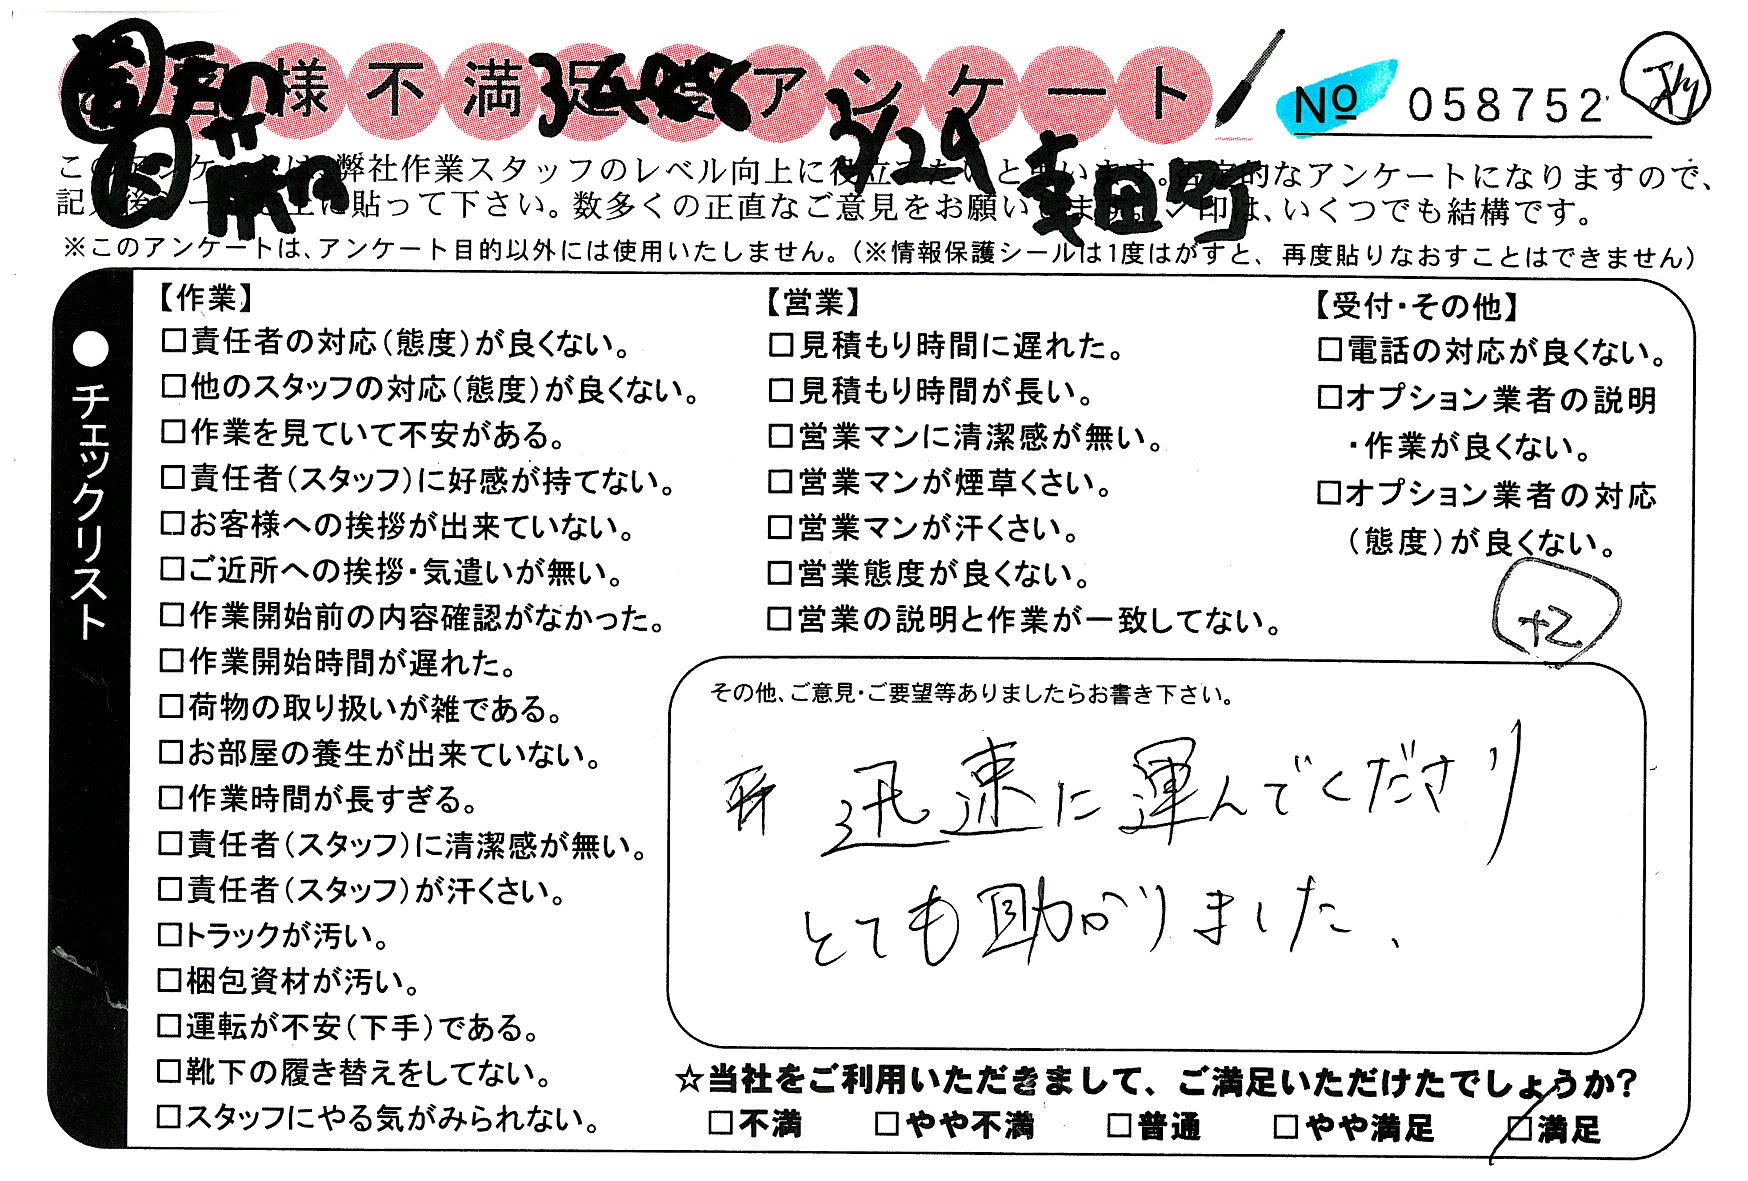 お客様不満足度アンケート
3/29
幸田町
№ 058752
このアンケートは、弊社作業スタッフのレベル向上に役立てたいと思います。否定的なアンケートになりますので、
記入後シールを上に貼って下さい。数多くの正直なご意見をお願いします。✓印は、いくつでも結構です。
※このアンケートは、アンケート目的以外には使用いたしません。(※情報保護シールは1度はがすと、再度貼りなおすことはできません)
●チェックリスト
【作業】
□責任者の対応(態度)が良くない。
□他のスタッフの対応(態度)が良くない。
□作業を見ていて不安がある。
□責任者(スタッフ)に好感が持てない。
□お客様への挨拶が出来ていない。
□ご近所への挨拶・気遣いが無い。
□作業開始前の内容確認がなかった。
□作業開始時間が遅れた。
□荷物の取り扱いが雑である。
□お部屋の養生が出来ていない。
□作業時間が長すぎる。
□責任者(スタッフ)に清潔感が無い。
□責任者(スタッフ)が汗くさい。
□トラックが汚い。
□梱包資材が汚い。
□運転が不安(下手)である。
□靴下の履き替えをしてない。
□スタッフにやる気がみられない。
【営業】
□見積もり時間に遅れた。
□見積もり時間が長い。
□営業マンに清潔感が無い。
□営業マンが煙草くさい。
□営業マンが汗くさい。
□営業態度が良くない。
□営業の説明と作業が一致してない。
【受付・その他】
□電話の対応が良くない。
□オプション業者の説明
・作業が良くない。
□オプション業者の対応
(態度)が良くない。
+2
その他、ご意見・ご要望等ありましたらお書き下さい。
迅速に運んでくださり
とても助かりました、
☆当社をご利用いただきまして、ご満足いただけたでしょうか?
□不満 □やや不満 □普通 □やや満足 □満足